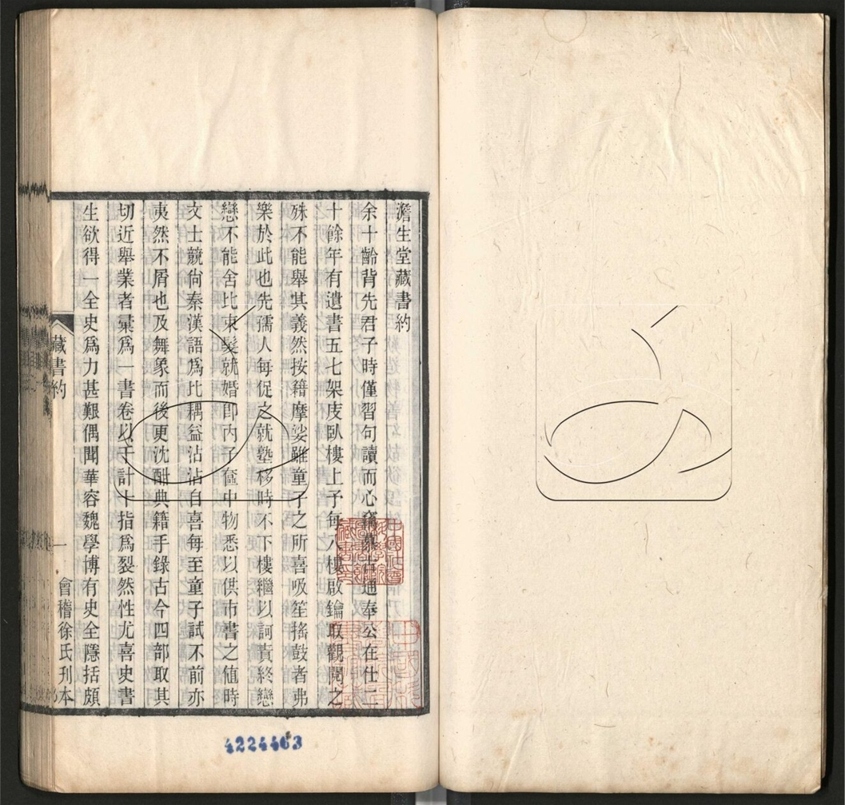 澹生堂藏書約
余十齡背先君子時僅習句讀而心竊慕古通奉公在仕二
十餘年有遺書五七架庋臥樓上予每入樓啟鑰取觀閱之
殊不能舉其義然按籍摩挲雖童子之所喜吸笙搖鼓者弗
樂於此也先孺人每促之就塾移時不下樓繼以訶責終戀
戀不能舍比束髮就婚卽內子奩中物悉以供市書之值時
文士競尚秦漢語爲比耦益沾沾自喜每至童子試不前亦
夷然不屑也及舞象而後更沈酣典籍手錄古今四部取其
切近舉業者彙爲一書卷以千計十指爲裂然性尤喜史書
生欲得一全史爲力甚艱偶聞華容魏學博有史全隱括頗
藏書約
一
會稽徐氏刊本
4224463